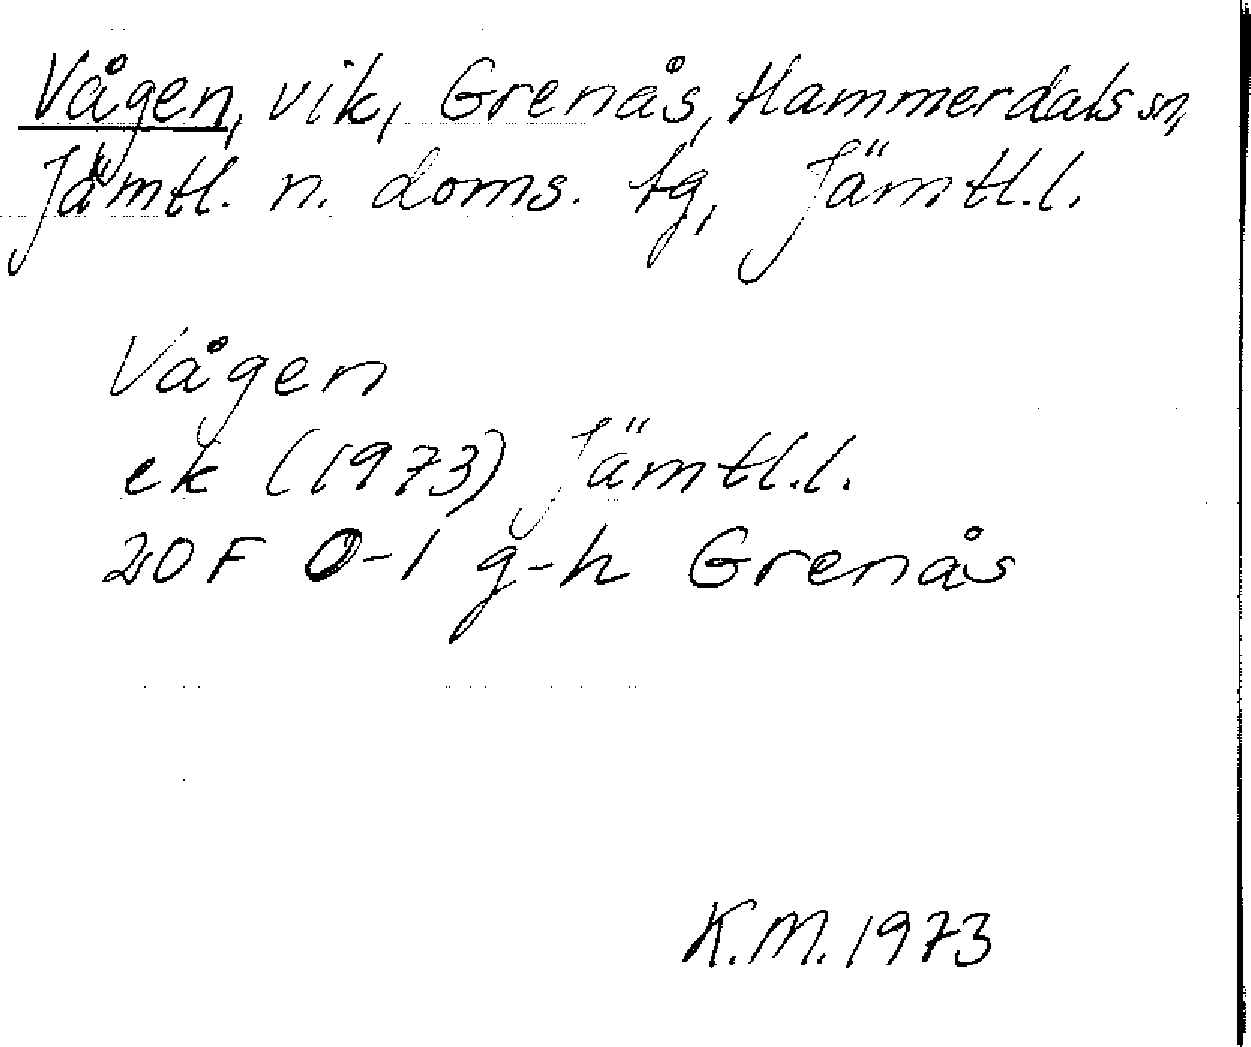 Vågen, vik, Grenås, Hammerdals sn,
Jämtl. n. doms. tg, Jämtl.l.
Vågen
ek (1973) Jämtl.l.
20F 0-1 g-h Grenås
K.M. 1973